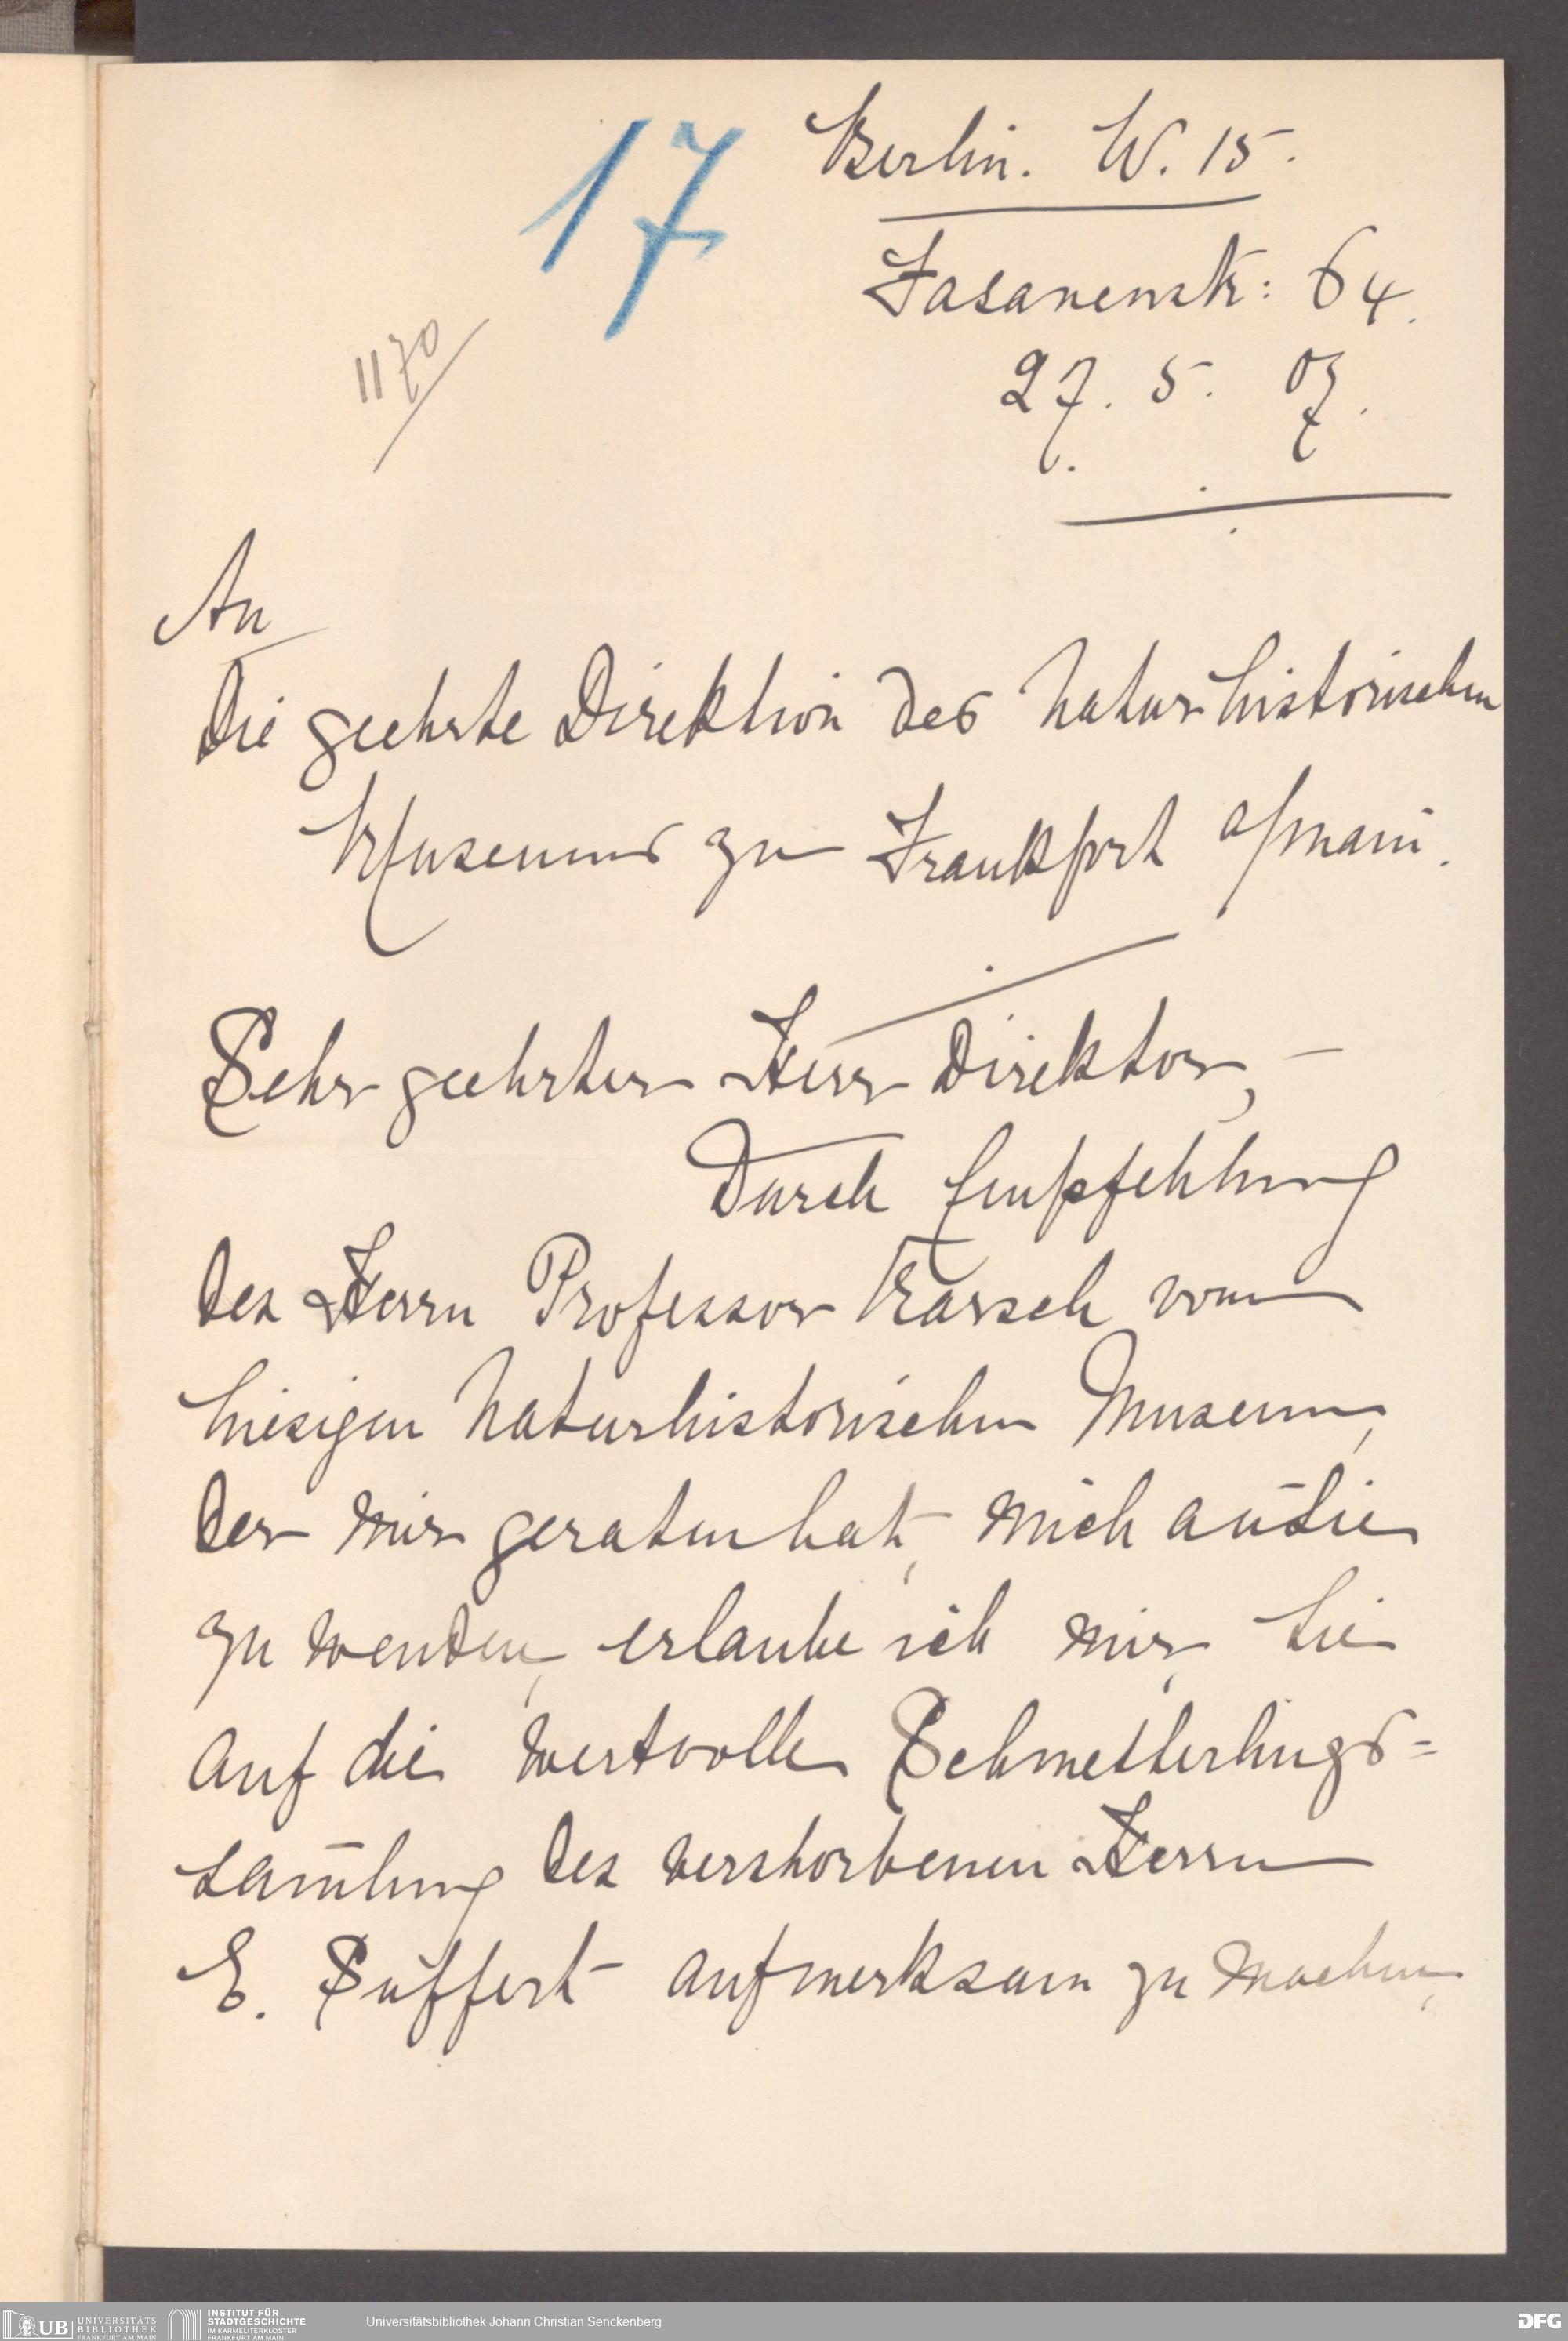 17
Berlin. W. 15.
Fasanenstr: 64.
27. 5. 07.
1170
An
Die geehrte Direktion des Naturhistorischen
Museums zu Frankfort a/main.
Sehr geehrter Herr Direktor, –
Durch Empfehlung
des Herrn Professor Karsch vom
hiesigen Naturhistorischen Museum,
der mir geraten hat, mich an Sie
zu wenden, erlaube ich mir, Sie
auf die wertvolle Schmetterlings=
sam̄lung des verstorbenen Herrn
E. Suffert aufmerksam zu machen,
UB UNIVERSITÄTS
BIBLIOTHEK
FRANKFURT AM MAIN
INSTITUT FÜR
STADTGESCHICHTE
IM KARMELITERKLOSTER
FRANKFURT AM MAIN
Universitätsbibliothek Johann Christian Senckenberg
DFG